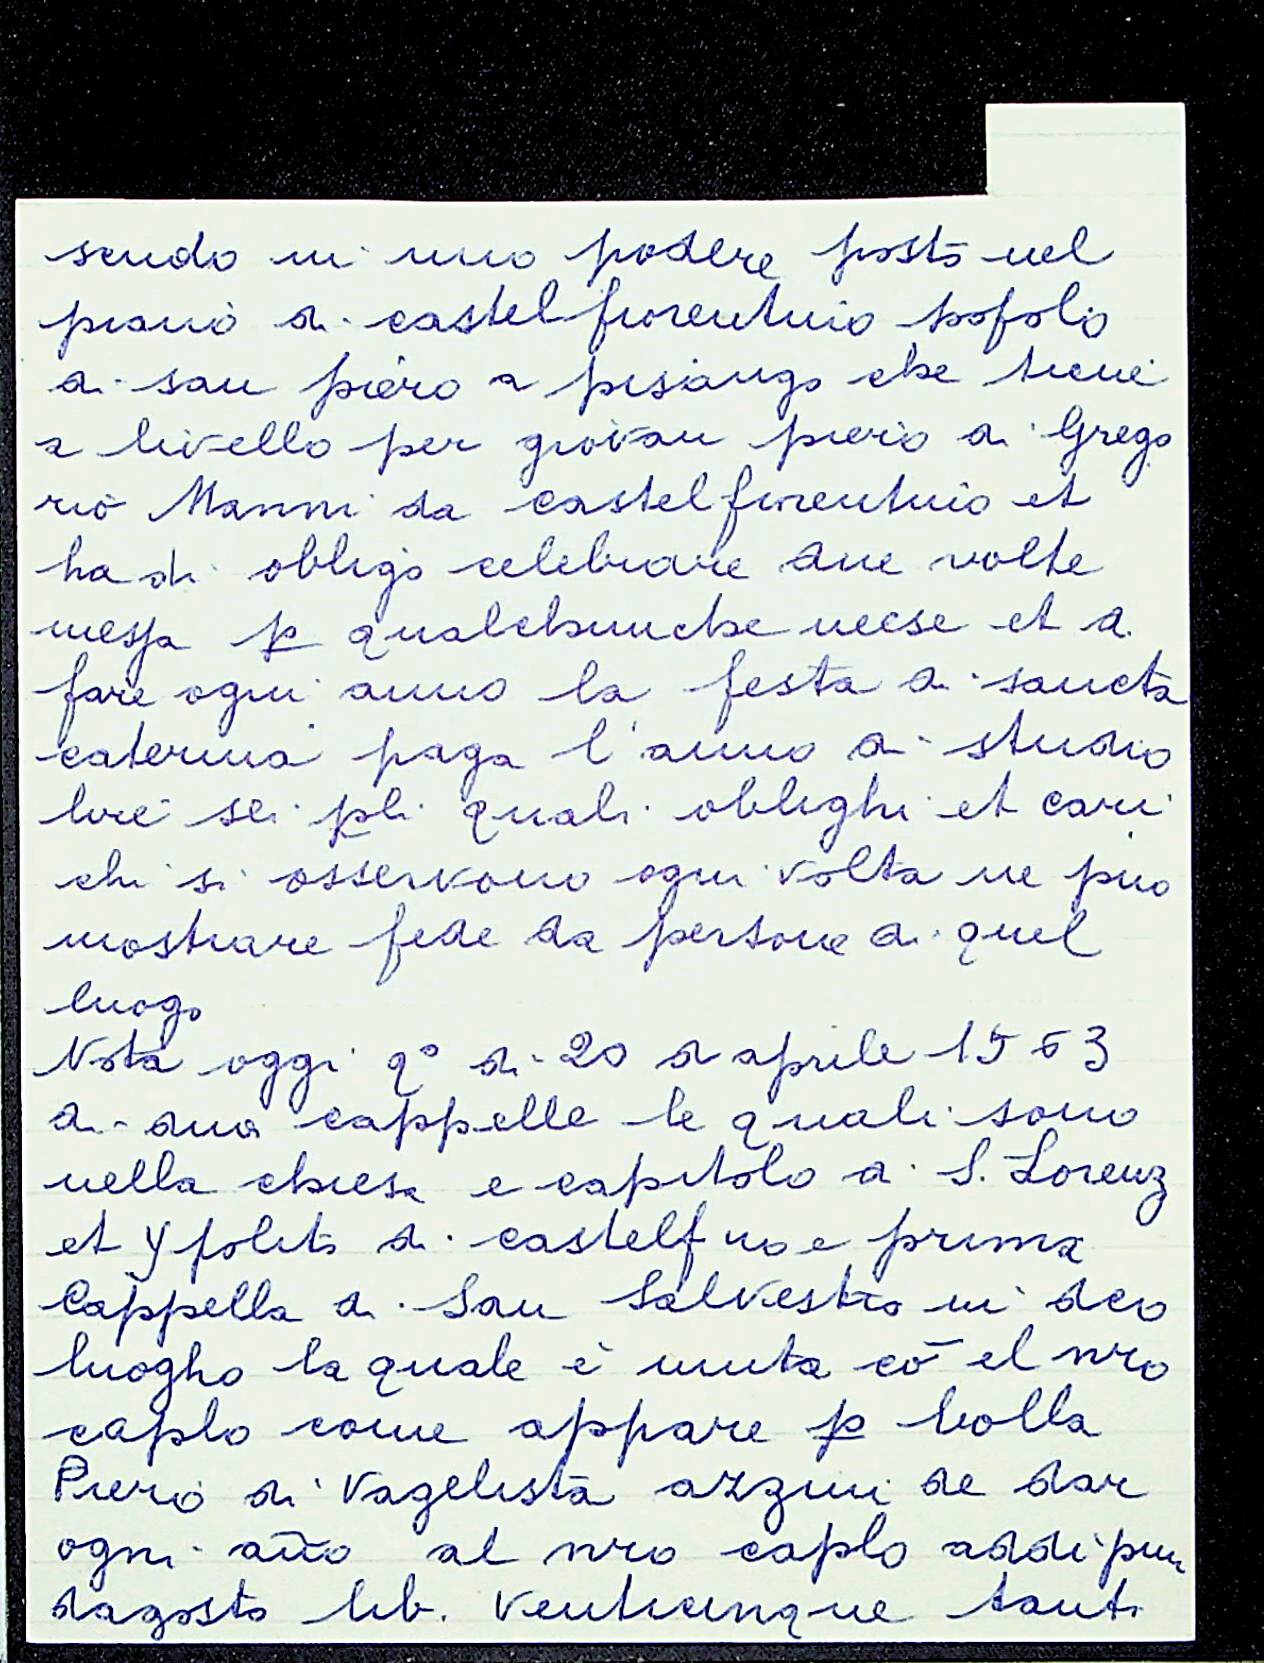 sendo in uno podere posto nel
piano di castel fiorentino popolo
di san piero a pisiango che tiene
a livello per giovan piero di Grego
rio Manni da castel fiorentino et
ha di obligo celebrare due volte
messa p qualchunche mese et di
fare ogni anno la festa di sancta
caterina paga l'anno di studio
lire sei pli quali oblighi et cari
chi si osservono ogni volta ne puo
mostrare fede da persone di quel
luogo
Nota oggi q° di 20 d aprile 1563
di dua cappelle le quali sono
nella chiesa e capitolo di S. Lorenz
et Ypolito di castelf no e prima
Cappella di San Salvestro in dco
luogho la quale è unita cō el nro
caplo come appare p bolla
Piero di Vagelista azzini de dar
ogni año al nro caplo addi pmo
dagosto lib. venticinque tanti